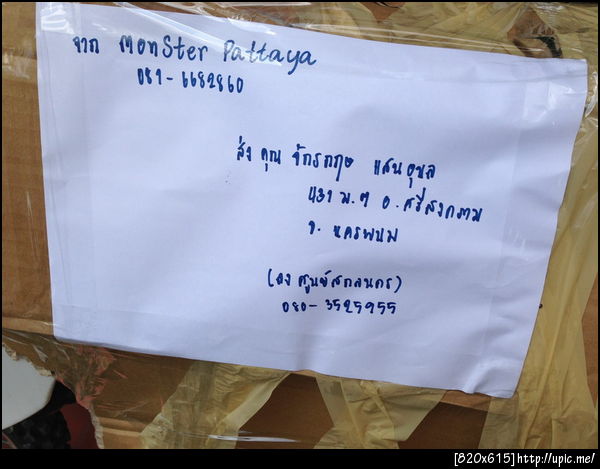 จาก Monster Pattaya
081-6682860
ส่ง คุณ จักรกฤษ แสนอุบล
431 ม.9 อ.ศรีสงคราม
จ. นครพนม
(ลง ศูนย์สกลนคร)
080-3525955
[820x615]http://upic.me/